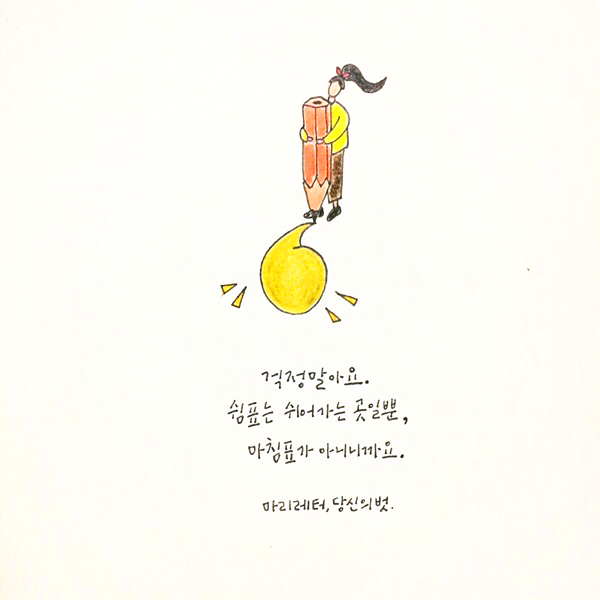 걱정말아요.
쉼표는 쉬어가는 곳일뿐,
마침표가 아니니까요.
마리레터, 당신의벗.